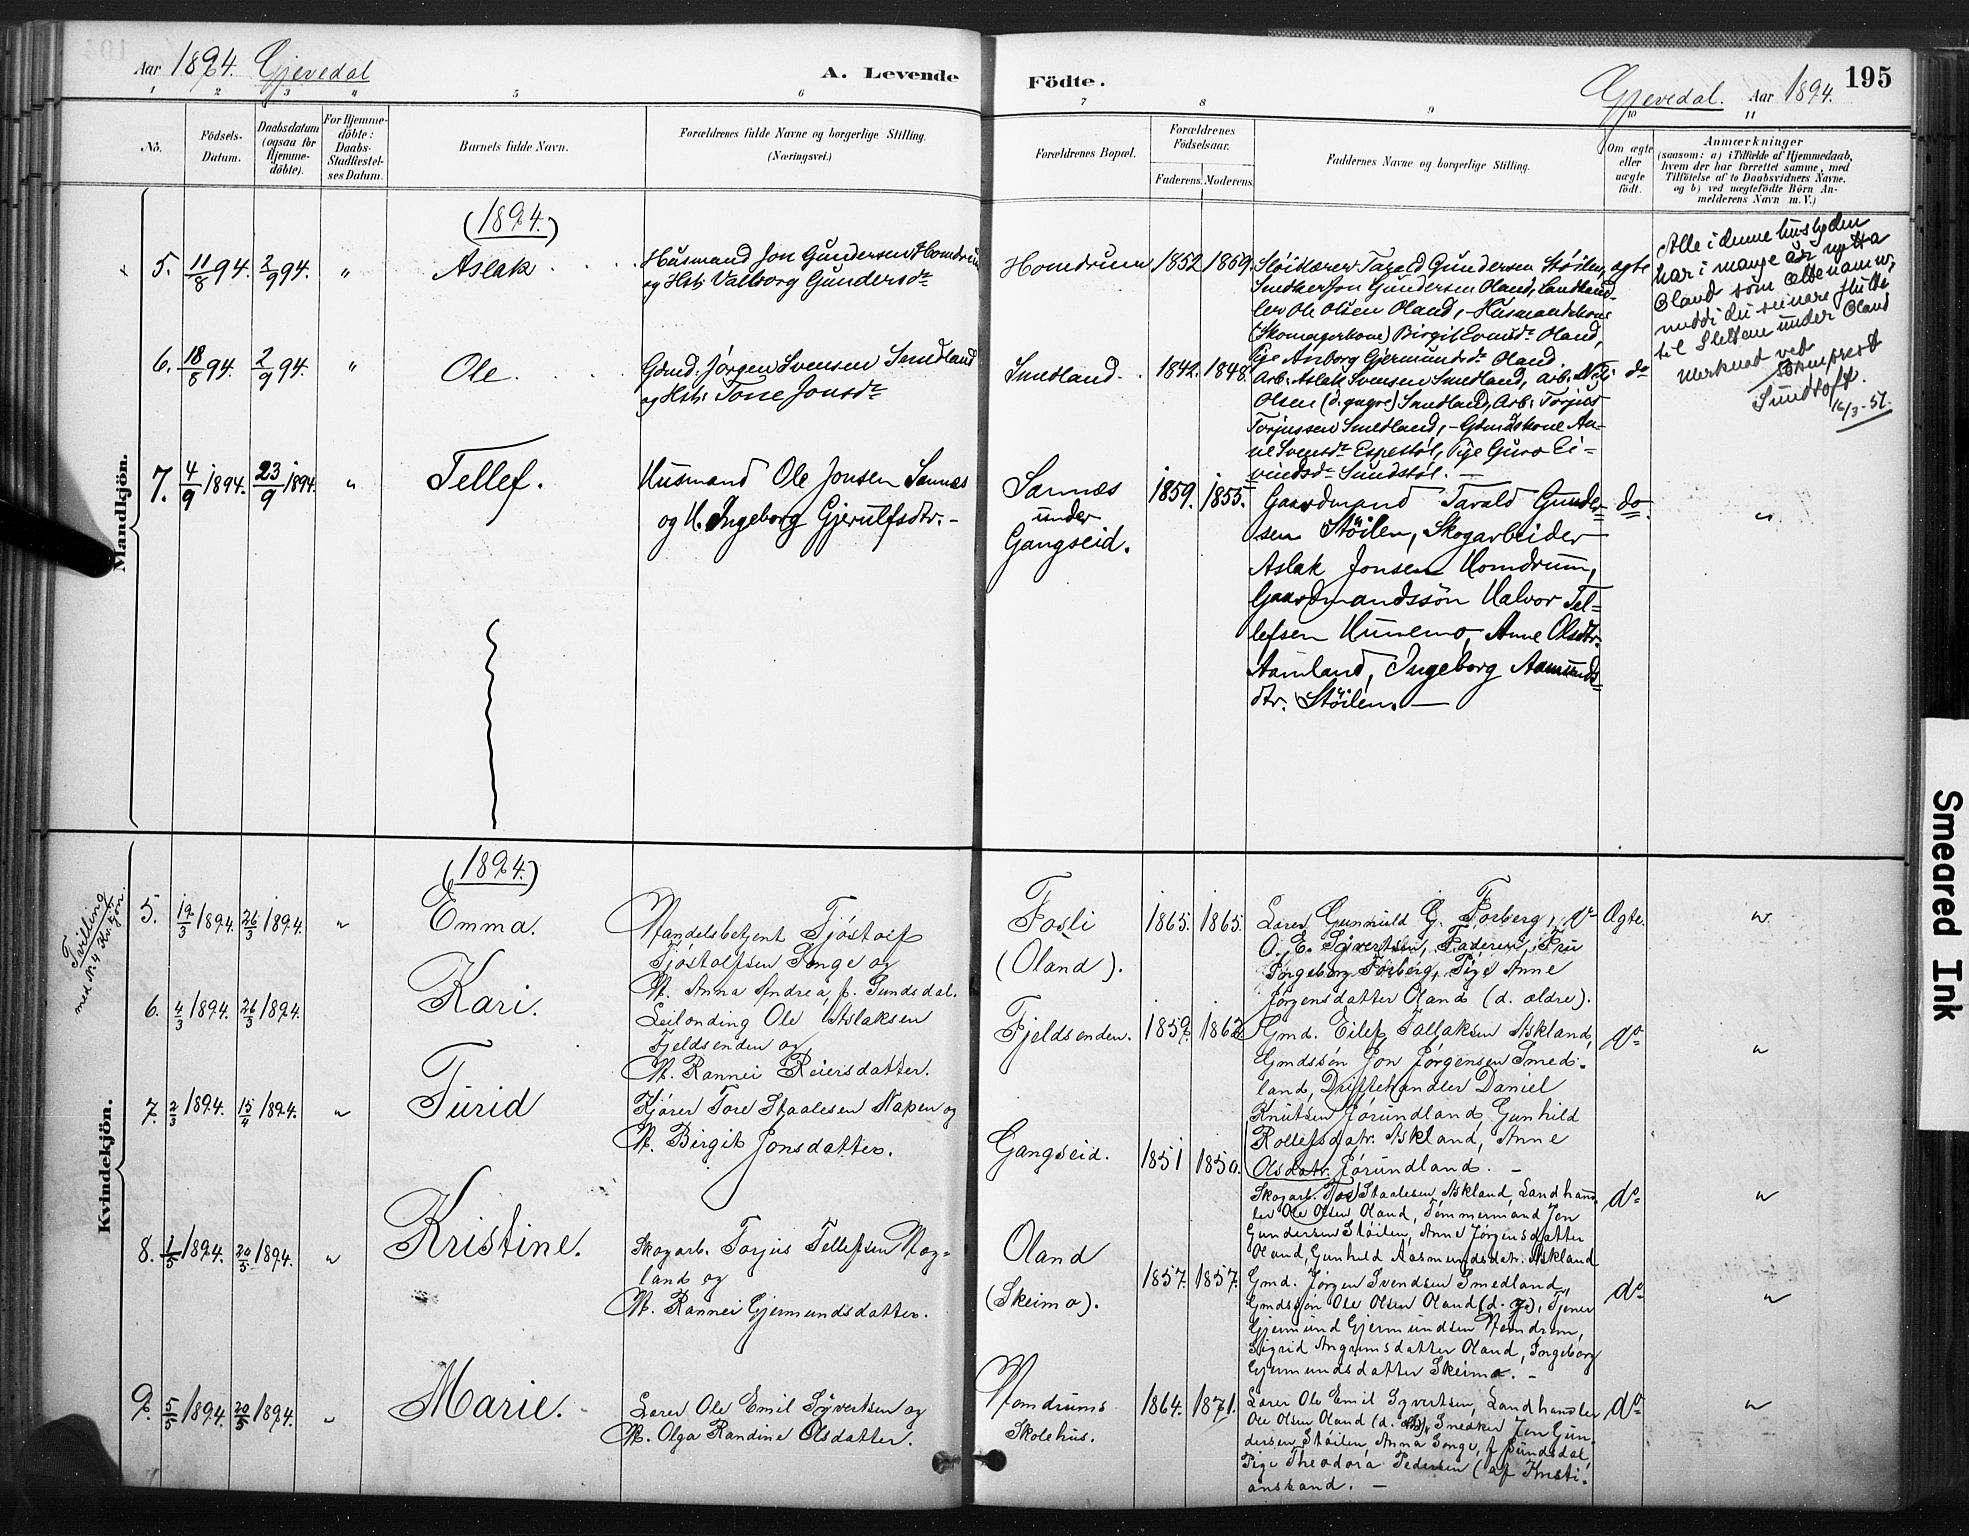 Aar 1894. Gjevedal
A. Levende
Födte.
Gjevedal. Aar 1894. 195
1 2 3 4 5 6 7 8 9 10 11
No.
Födsels-
Datum.
Daabsdatum
(ogsaa för
Hjemme-
döbte).
For Hjemme-
döbte:
Daabs-
Stadfæstel-
ses Datum.
Barnets fulde Navn.
Forældrenes fulde Navne og borgerlige Stilling.
(Næringsvei.)
Forældrenes Bopæl.
Forældrenes
Födselsaar.
Faderens. Moderens.
Faddernes Navne og borgerlige Stilling.
Om ægte
eller
uægte
födt.
Anmærkninger
(saasom: a) i Tilfælde af Hjemmedaab,
hvem der har forrettet samme, med
Tilföielse af to Daabsvidners Navne,
og b) ved uægtefödte Börn An-
melderens Navn m. V.)
Mandkjön.
(1894.)
5. 11/8 94. 2/9 94. "
Aslak
Husmand Jon Gundersen Homdrum
og Hst: Valborg Gundersdr
Homdrum 1852 1869.
Sløitlærer Tarald Gundersen Støilen,
Snedker Jon Gundersen Oland, Landhand-
ler Ole Olsen Oland, - Husmandskone
(Skomagerkone) Birgit Evindsdr Oland,
Pige Anborg Gjermundsdr Oland
ægte
Alle i denne huslyden
har i mange år nytta
Oland som ættenamn,
midt dei seinare flytte
til Slettene under Oland
Merknad ved
sokneprest
Sundtoft.
16/3-57.
6. 18/8 94. 2/9 94. "
Ole.
Gdmd. Jørgen Svensen Smedland
og Hst: Tone Jonsdr
Smedland. 1842. 1848.
Arb: Aslak Svensen Smedland, Arb: Nils
Olsen (d. yngre) Smedland, Arb: Torjus
Torjussen Smedland, - Gdmdskone An-
ne Svensdr Espestøl, Pige Guro Ei-
vindsdr Sundstøl. -
do
7. 4/9 1894. 23/9 1894. "
Tellef.
Husmand Ole Jonsen Sannæs
og H. Ingeborg Gjerulfsdtr. -
Sannæs
under
Gangseid.
1859. 1855.
Gaardmand Tarald Gunder=
sen Støilen, Skogarbeider
Aslak Jonsen Homdrum,
Gaardmandssön Halvor Tel=
lefsen Hunemo, Anne Olsdtr.
Aamland, Ingeborg Aamunds=
dtr. Støilen. -
do. "
Kvindekjön.
(1894.)
Tvilling
med Nr. 4 Kv.kjön.
5. 19/3 1894. 26/3 1894. "
Emma.
Handelsbetjent Tjöstolf
Tjöstolfsen Songe og
H. Anna Andrea, f. Sundsdal.
Fosli
(Oland).
1865. 1865.
Lærer Gunnuld G. Forberg, do
O. E. Syvertsen, Faderen, Fru
Ingeborg Forberg, Pige Anne
Jörgensdatter Oland (d. ældre).
Ægte. "
6. 4/3 1894. 26/3 1894.
Kari.
Leilending Ole Aslaksen
Fjeldsenden og
H. Rannei Reiersdatter.
Fjeldsenden. 1859. 1862
Gmd. Eilef Tallaksen Askland,
Gmdssön Jon Jörgensen Smed-
land, Driftehandler Daniel
Knutsen Jörundland, Gunhild
Rollefsdatr. Askland, Anne
Olsdatr. Jörundland. -
do "
7. 2/3 1894. 15/4 1894. "
Turid
Kjörer Tore Staalesen Napen og
H. Birgit Jonsdatter.
Gangseid. 1851 1850.
Skogarb. Tor Staalesen Askland, Landhand-
ler Ole Olsen Oland, Tömmermand Jon
Gundersen Støilen, Anne Jörgensdatter
Oland, Gunhild Aasmundsdatr. Askland
do "
8. 1/5 1894. 20/5 1894. "
Kristine.
Skogarb. Torjus Tellefsen Hog-
land og
H. Rannei Gjermundsdatter.
Oland
(Skeimo).
1857. 1857.
Gmd. Jörgen Svendsen Smedland,
Gmdssön Ole Olsen Oland (d. y.), Tjener
Gjermund Gjermundsen Homdrom,
Sigrid Angrimsdatter Oland, Ingeborg
Gjermundsdatter Skeimo. -
do "
9. 5/5 1894. 20/5 1894. "
Marie.
Lærer Ole Emil Syvertsen og
H. Olga Randine Olsdatter.
Homdrums
Skolehus.
1864. 1871.
Lærer Ole Emil Syvertsen, Landhandler
Ole Olsen Oland (d. Snedker Jon Gun-
dersen Støilen, Anna Songe, f. Sundsdal,
Pige Theodora Pedersen (af Kristi-
anssand. -
do "
Smeared Ink